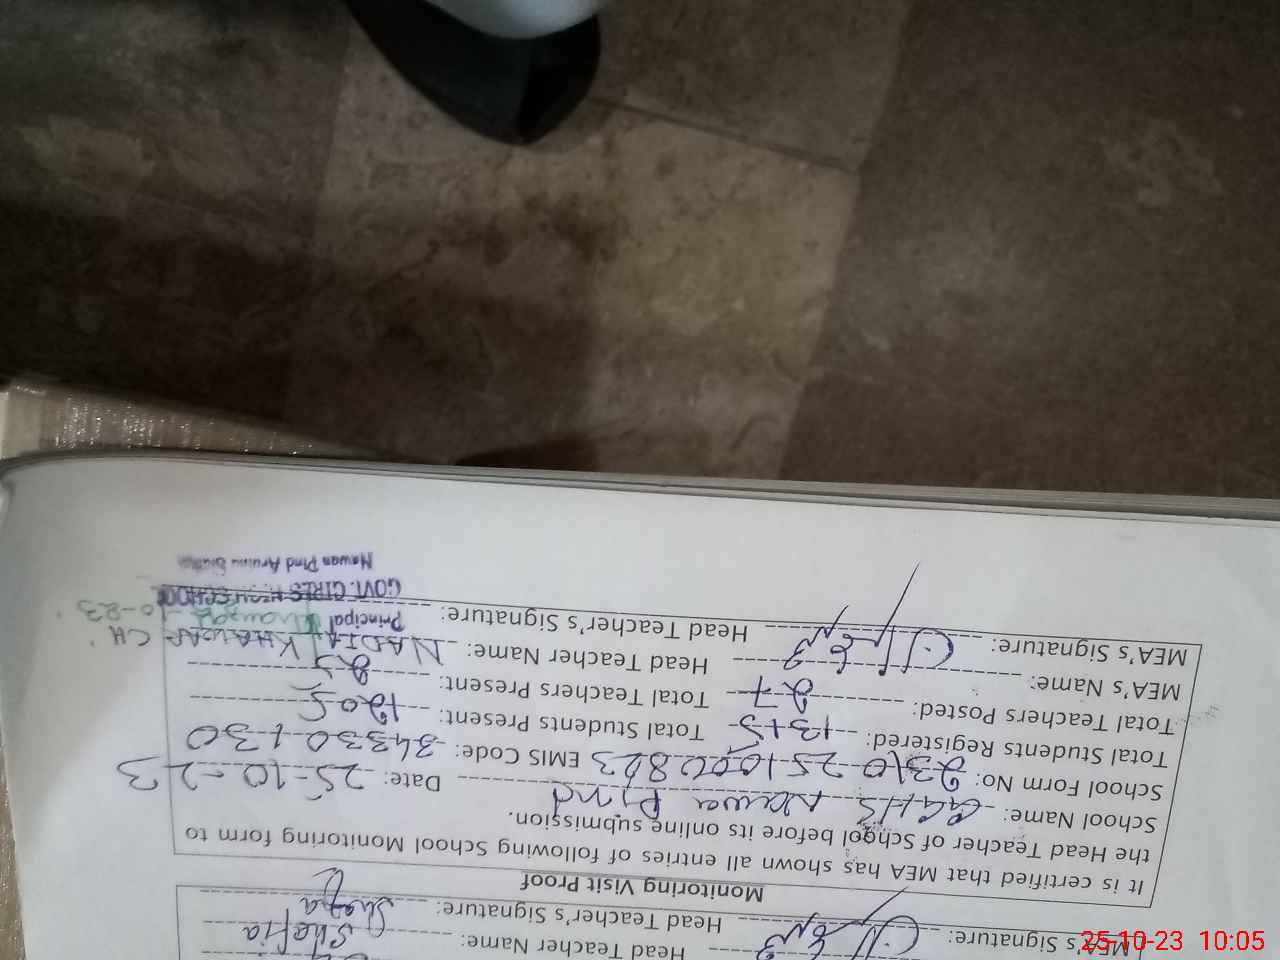 MEA's Signature: Head Teacher Name: Shafia
Head Teacher's Signature: Shafia
Monitoring Visit Proof
It is certified that MEA has shown all entries of following of School Monitoring form to
the Head Teacher of School before its online submission.
School Name: GGHS Nawa Pind Date: 25-10-23
School Form No: EMIS Code: 34330130
Total Students Registered: 1315 Total Students Present: 1205
Total Teachers Posted: 27 Total Teachers Present: 25
MEA's Name: Head Teacher Name: NADIA KHAWAR CH
MEA's Signature: Head Teacher's Signature:
Principal
GOVT. GIRLS HIGH SCHOOL
Nawan Pind
25-10-23 10:05